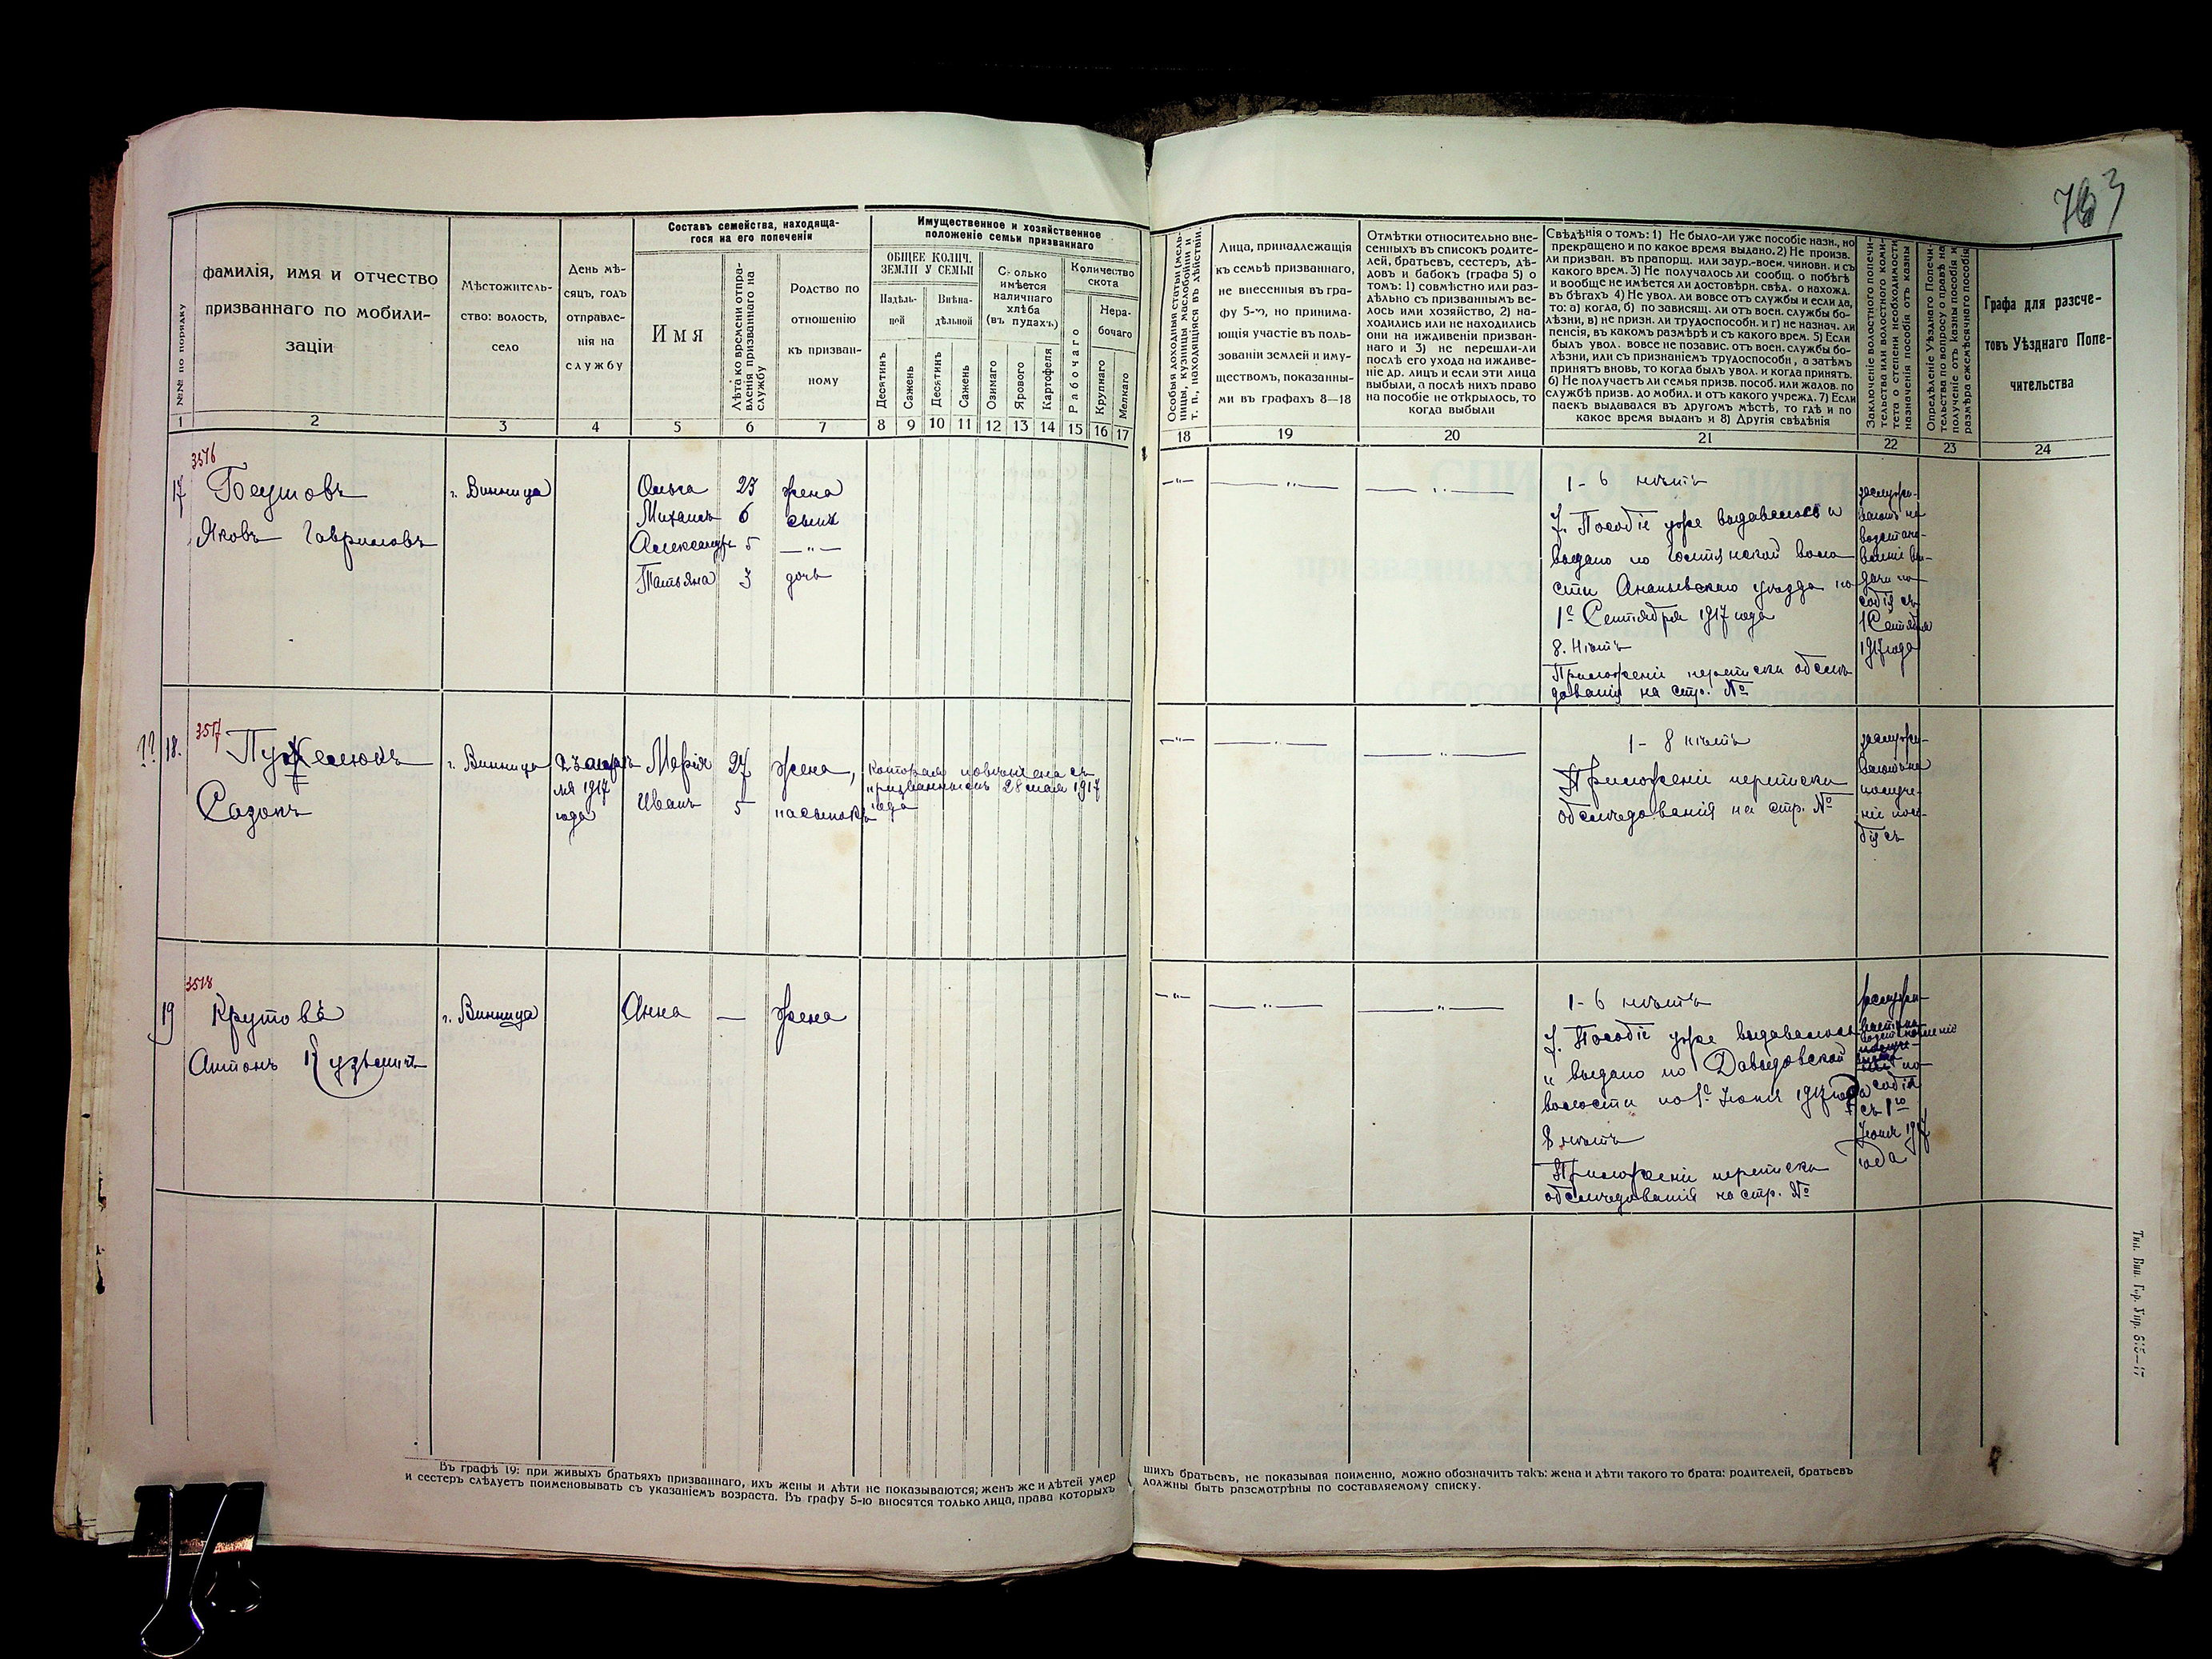 763
фамилія, имя и отчество
призваннаго по мобили-
заціи
Мѣстожитель-
ство: волость,
село
День мѣ-
сяцъ, годъ
отправле-
нія на
службу
Составъ семейства, находяща-
гося на его попеченіи
Имя
Лѣта ко времени отпра-
вленія призваннаго на
службу
Родство по
отношенію
къ призван-
ному
Имущественное и хозяйственное
положеніе семьи призваннаго
ОБЩЕЕ КОЛИЧ.
ЗЕМЛИ У СЕМЬИ
Надѣль-
ной
Внѣна-
дѣльной
Сколько
имѣется
наличнаго
хлѣба
(въ пудахъ)
Количество
скота
Нера-
бочаго
№№ по порядку
Десятинъ
Сажень
Десятинъ
Сажень
Озимаго
Ярового
Картофеля
Рабочаго
Крупнаго
Мелкаго
1 2 3 4 5 6 7 8 9 10 11 12 13 14 15 16 17
Особыя доходныя статьи (мель-
ницы, кузницы маслобойни и
т. п., находящіяся въ дѣйствіи.
Лица, принадлежащія
къ семьѣ призваннаго,
не внесенныя въ гра-
фу 5-ю, но принима-
ющія участіе въ поль-
зованіи землей и иму-
ществомъ, показанны-
ми въ графахъ 8—18
Отмѣтки относительно вне-
сенныхъ въ списокъ родите-
лей, братьевъ, сестеръ, дѣ-
довъ и бабокъ (графа 5) о
томъ: 1) совмѣстно или раз-
дѣльно съ призваннымъ ве-
лось ими хозяйство, 2) на-
ходились или не находились
они на иждивеніи призван-
наго и 3) не перешли-ли
послѣ его ухода на иждиве-
ніе др. лицъ и если эти лица
выбыли, а послѣ нихъ право
на пособіе не открылось, то
когда выбыли
Свѣдѣнія о томъ: 1) Не было-ли уже пособіе назн., но
прекращено и по какое время выдано. 2) Не произв.
ли призван. въ прапорщ. или заур.-воен. чиновн. и съ
какого врем. 3) Не получалось ли сообщ. о побѣгѣ
и вообще не имѣется ли достовѣрн. свѣд. о нахожд.
въ бѣгахъ 4) Не увол. ли вовсе отъ службы и если да,
то: а) когда, б) по зависящ. ли отъ воен. службы бо-
лѣзни, в) не призн. ли трудоспособн. и г) не назнач. ли
пенсія, въ какомъ размѣрѣ и съ какого врем. 5) Если
былъ увол. вовсе не позавис. отъ воен. службы бо-
лѣзни, или съ признаніемъ трудоспособн, а затѣмъ
принятъ вновь, то когда былъ увол. и когда принятъ.
6) Не получаетъ ли семья призв. пособ. или жалов. по
службѣ призв. до мобил. и отъ какого учрежд. 7) Если
паекъ выдавался въ другомъ мѣстѣ, то гдѣ и по
какое время выданъ и 8) Другія свѣдѣнія
Заключеніе волостного попечи-
тельства или волостного коми-
тета о степени необходимости
назначенія пособія отъ казны
Опредѣленіе Уѣзднаго Попечи-
тельства по вопросу о правѣ на
полученіе отъ казны пособія и
размѣра ежемѣсячнаго пособія
Графа для разсче-
товъ Уѣзднаго Попе-
чительства
18 19 20 21 22 23 24
3516
17
Яковъ Гавриловъ
г. Винница
Ольга 23 жена
Михаилъ 6 сынъ
Александръ 5 —„—
Татьяна 3 дочь
1-6 нѣтъ
7. Пособіе уже выдавалось и
выдано по воло
сти Ананьевскаго уѣзда по
1е Сентября 1917 года
8. Нѣтъ
Приложеніе переписки обслѣ
дованія на стр. №
заслужи-
ваютъ на
возстано-
вленіе вы-
дачи по-
собія съ
1 Сентября
1917 года
3517
18.
Сазонъ
г. Винница
23 апрѣ
ля 1917
года
Марія 27 жена, которая повѣнчена съ
призваннымъ 28 мая 1917
года
Иванъ 5 пасынокъ
1-8 нѣтъ
Приложеніе переписки
обслѣдованія на стр. №
заслужи-
ваютъ на
получе-
ніе посо-
бія съ
3518
19
Крутовъ
Антонъ Кузьмичъ
г. Винница
Анна — жена
1-6 нѣтъ
7. Пособіе уже выдавалось
и выдано по Давыдовской
волости по 1е Іюня 1917 года
8 нѣтъ
Приложеніе переписки
обслѣдованія на стр. №
заслужи-
по-
собія
съ 1го
Іюня 1917
года
Въ графѣ 19: при живыхъ братьяхъ призваннаго, ихъ жены и дѣти не показываются; женъ же и дѣтей умер
шихъ братьевъ, не показывая поименно, можно обозначить такъ: жена и дѣти такого то брата: родителей, братьевъ
и сестеръ слѣдуетъ поименовывать съ указаніемъ возраста. Въ графу 5-ю вносятся только лица, права которыхъ
должны быть разсмотрѣны по составляемому списку.
Тип. Вин. Гор. Упр. 615—17